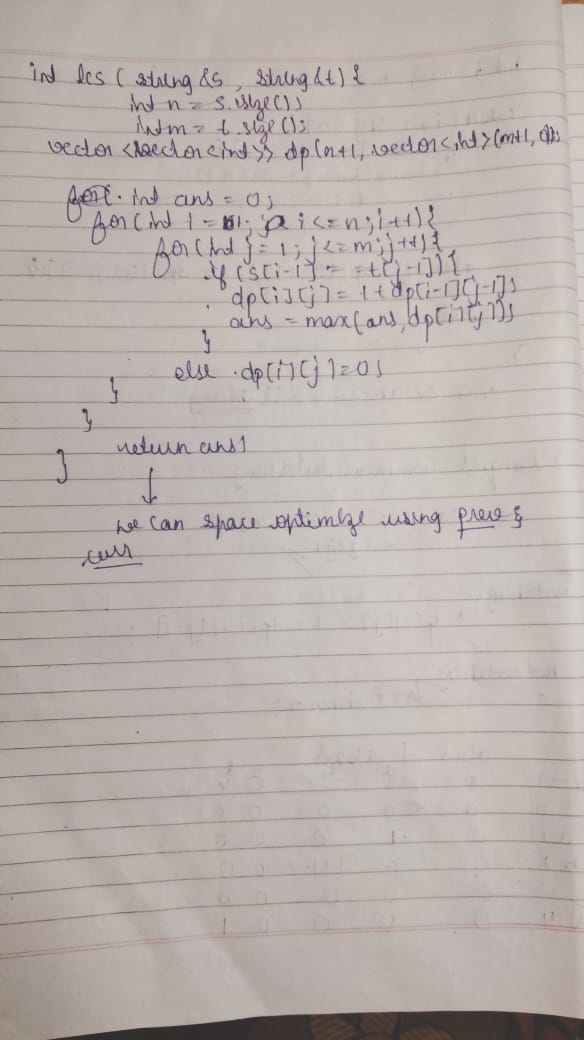 int lcs ( string &s , string &t) {
int n = s.size();
int m = t.size();
vector <vector<int>> dp(n+1, vector<int>(m+1, 0));
int ans = 0;
for(int i = 1; i <= n; i++){
for(int j = 1; j <= m; j++){
if (s[i-1] = = t[j-1]){
dp[i][j] = 1+dp[i-1][j-1];
ans = max(ans, dp[i][j]);
}
else dp[i][j]=0;
}
}
return ans;
}
we can space optimize using prev &
curr